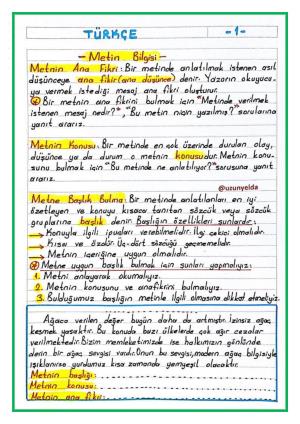 TÜRKÇE
-1-
- Metin Bilgisi -
Metnin Ana Fikri: Bir metinde anlatılmak istenen asıl
düşünceye ana fikir (ana düşünce) denir. Yazarın okuyucu-
ya vermek istediği mesaj ana fikri oluşturur.
Bir metnin ana fikrini bulmak için "Metinde verilmek
istenen mesaj nedir?", "Bu metin niçin yazılmış?" sorularına
yanıt ararız.
Metnin Konusu: Bir metinde en çok üzerinde durulan olay,
düşünce ya da durum o metnin konusudur. Metnin konu-
sunu bulmak için "Bu metinde ne anlatılıyor?" sorusuna
yanıt ararız.
@uzunyelda
Metne Başlık Bulma: Bir metinde anlatılanları en iyi
özetleyen ve konuyu kısaca tanıtan sözcük veya sözcük
gruplarına başlık denir. Başlığın özellikleri şunlardır:
Konuyla ilgili ipuçları verebilmelidir. İlgi çekici olmalıdır.
Kısa ve özdür. Üç-dört sözcüğü geçmemelidir.
Metnin içeriğine uygun olmalıdır.
Metne uygun başlık bulmak için şunları yapmalıyız:
1. Metni anlayarak okumalıyız.
2. Metnin konusunu ve anafikrini bulmalıyız.
3. Bulduğumuz başlığın metinle ilgili olmasına dikkat etmeliyiz.
Ağaca verilen değer bugün daha da artmıştır. İzinsiz ağaç
kesmek yasaktır. Bu konuda bazı ülkelerde çok ağır cezalar
verilmektedir. Bizim memleketimizde ise halkımızın gönlünde
derin bir ağaç sevgisi vardır. Onun bu sevgisi, modern ağaç bilgisiyle
ışıklanırsa yurdumuz kısa zamanda yemyeşil olacaktır.
Metnin başlığı:
Metnin konusu:
Metnin ana fikri: